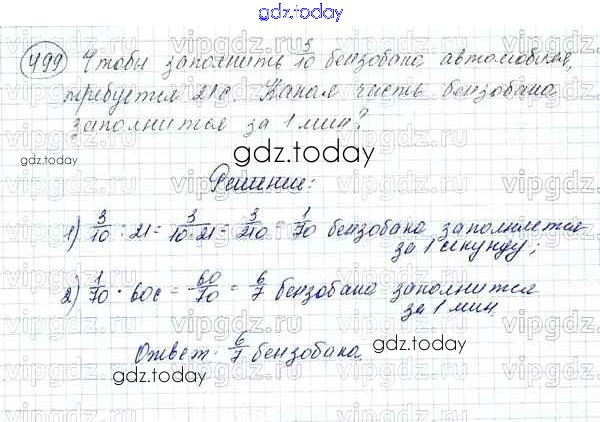 gdz.today
499 Чтобы заполнить 3/10 бензобака автомобиля,
требуется 21с. Какая часть бензобака
заполнится за 1 мин?
gdz.today
Решение:
1) 3/10 : 21 = 3/10·21 = 3/210 = 1/70 бензобака заполняется
за 1 секунду;
2) 1/70 · 60с = 60/70 = 6/7 бензобака заполнится
за 1 мин.
gdz.today
Ответ: 6/7 бензобака.
gdz.today